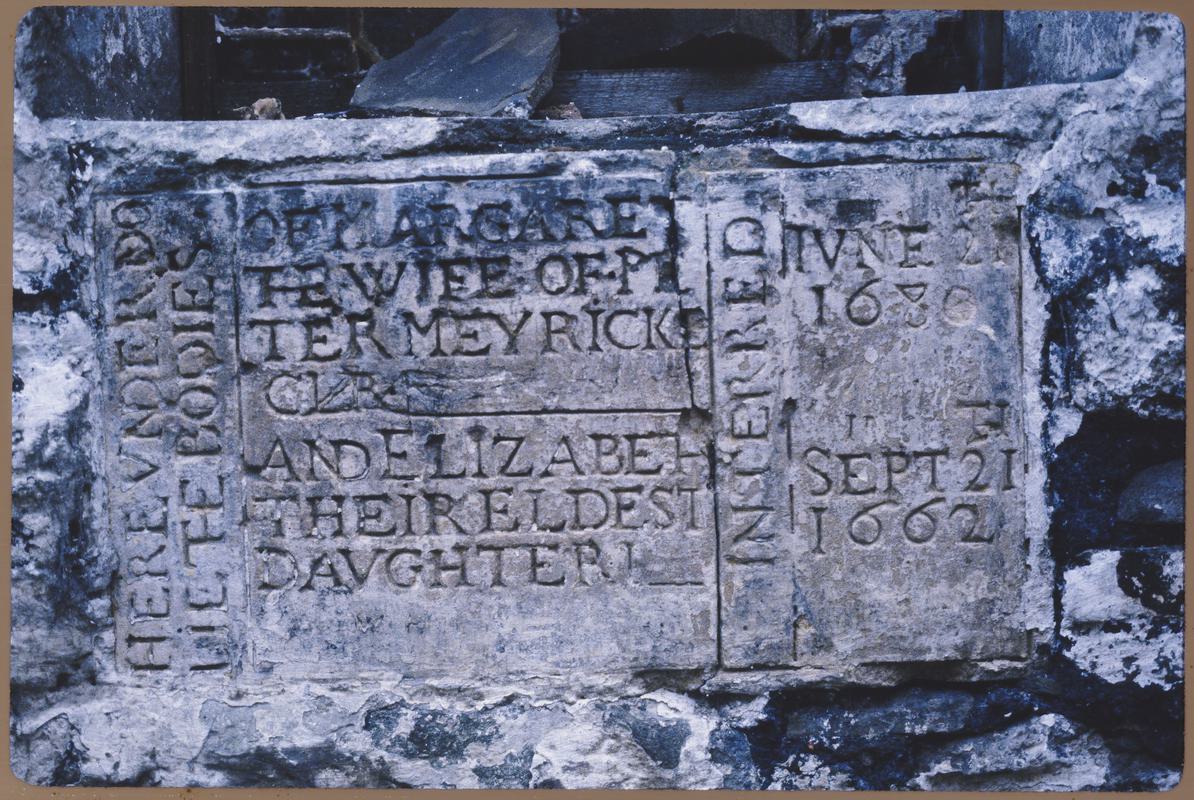 HERE VNDER DO
LIE THE BODIES
OF MARGARET
THE WIFE OF PE
TER MEYRICKE
CLER
AND ELIZABETH
THEIR ELDEST
DAVGHTER
INTERRED
IVNE 21
TH
SEPT 21
1662